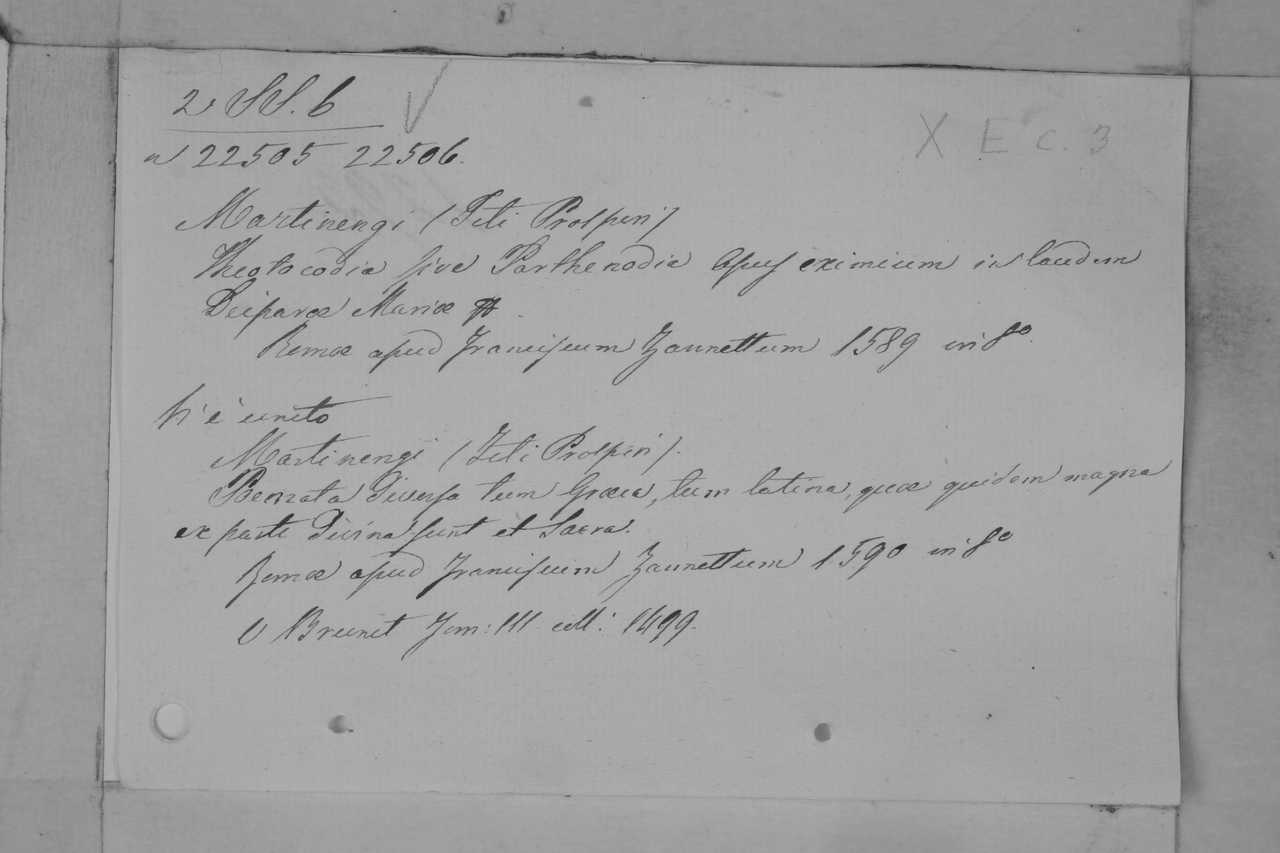 2 SS. 6
X E c. 3
n 22505 22506.
Martinengi (Titi Prosperi)
Theotocodia sive Parthenodia Opus eximium in laudem
Deiparæ Mariæ
Romæ apud Franciscum Zannettum 1589 in 8º.
V'è unito
Martinengi (Titi Prosperi).
Poemata Diversa tum Græca, tum latina, quæ quidem magna
ex parte Divina sunt et Sacra.
Romæ apud Franciscum Zannettum 1590 in 8º
V Brunet Tom: III coll: 1499.